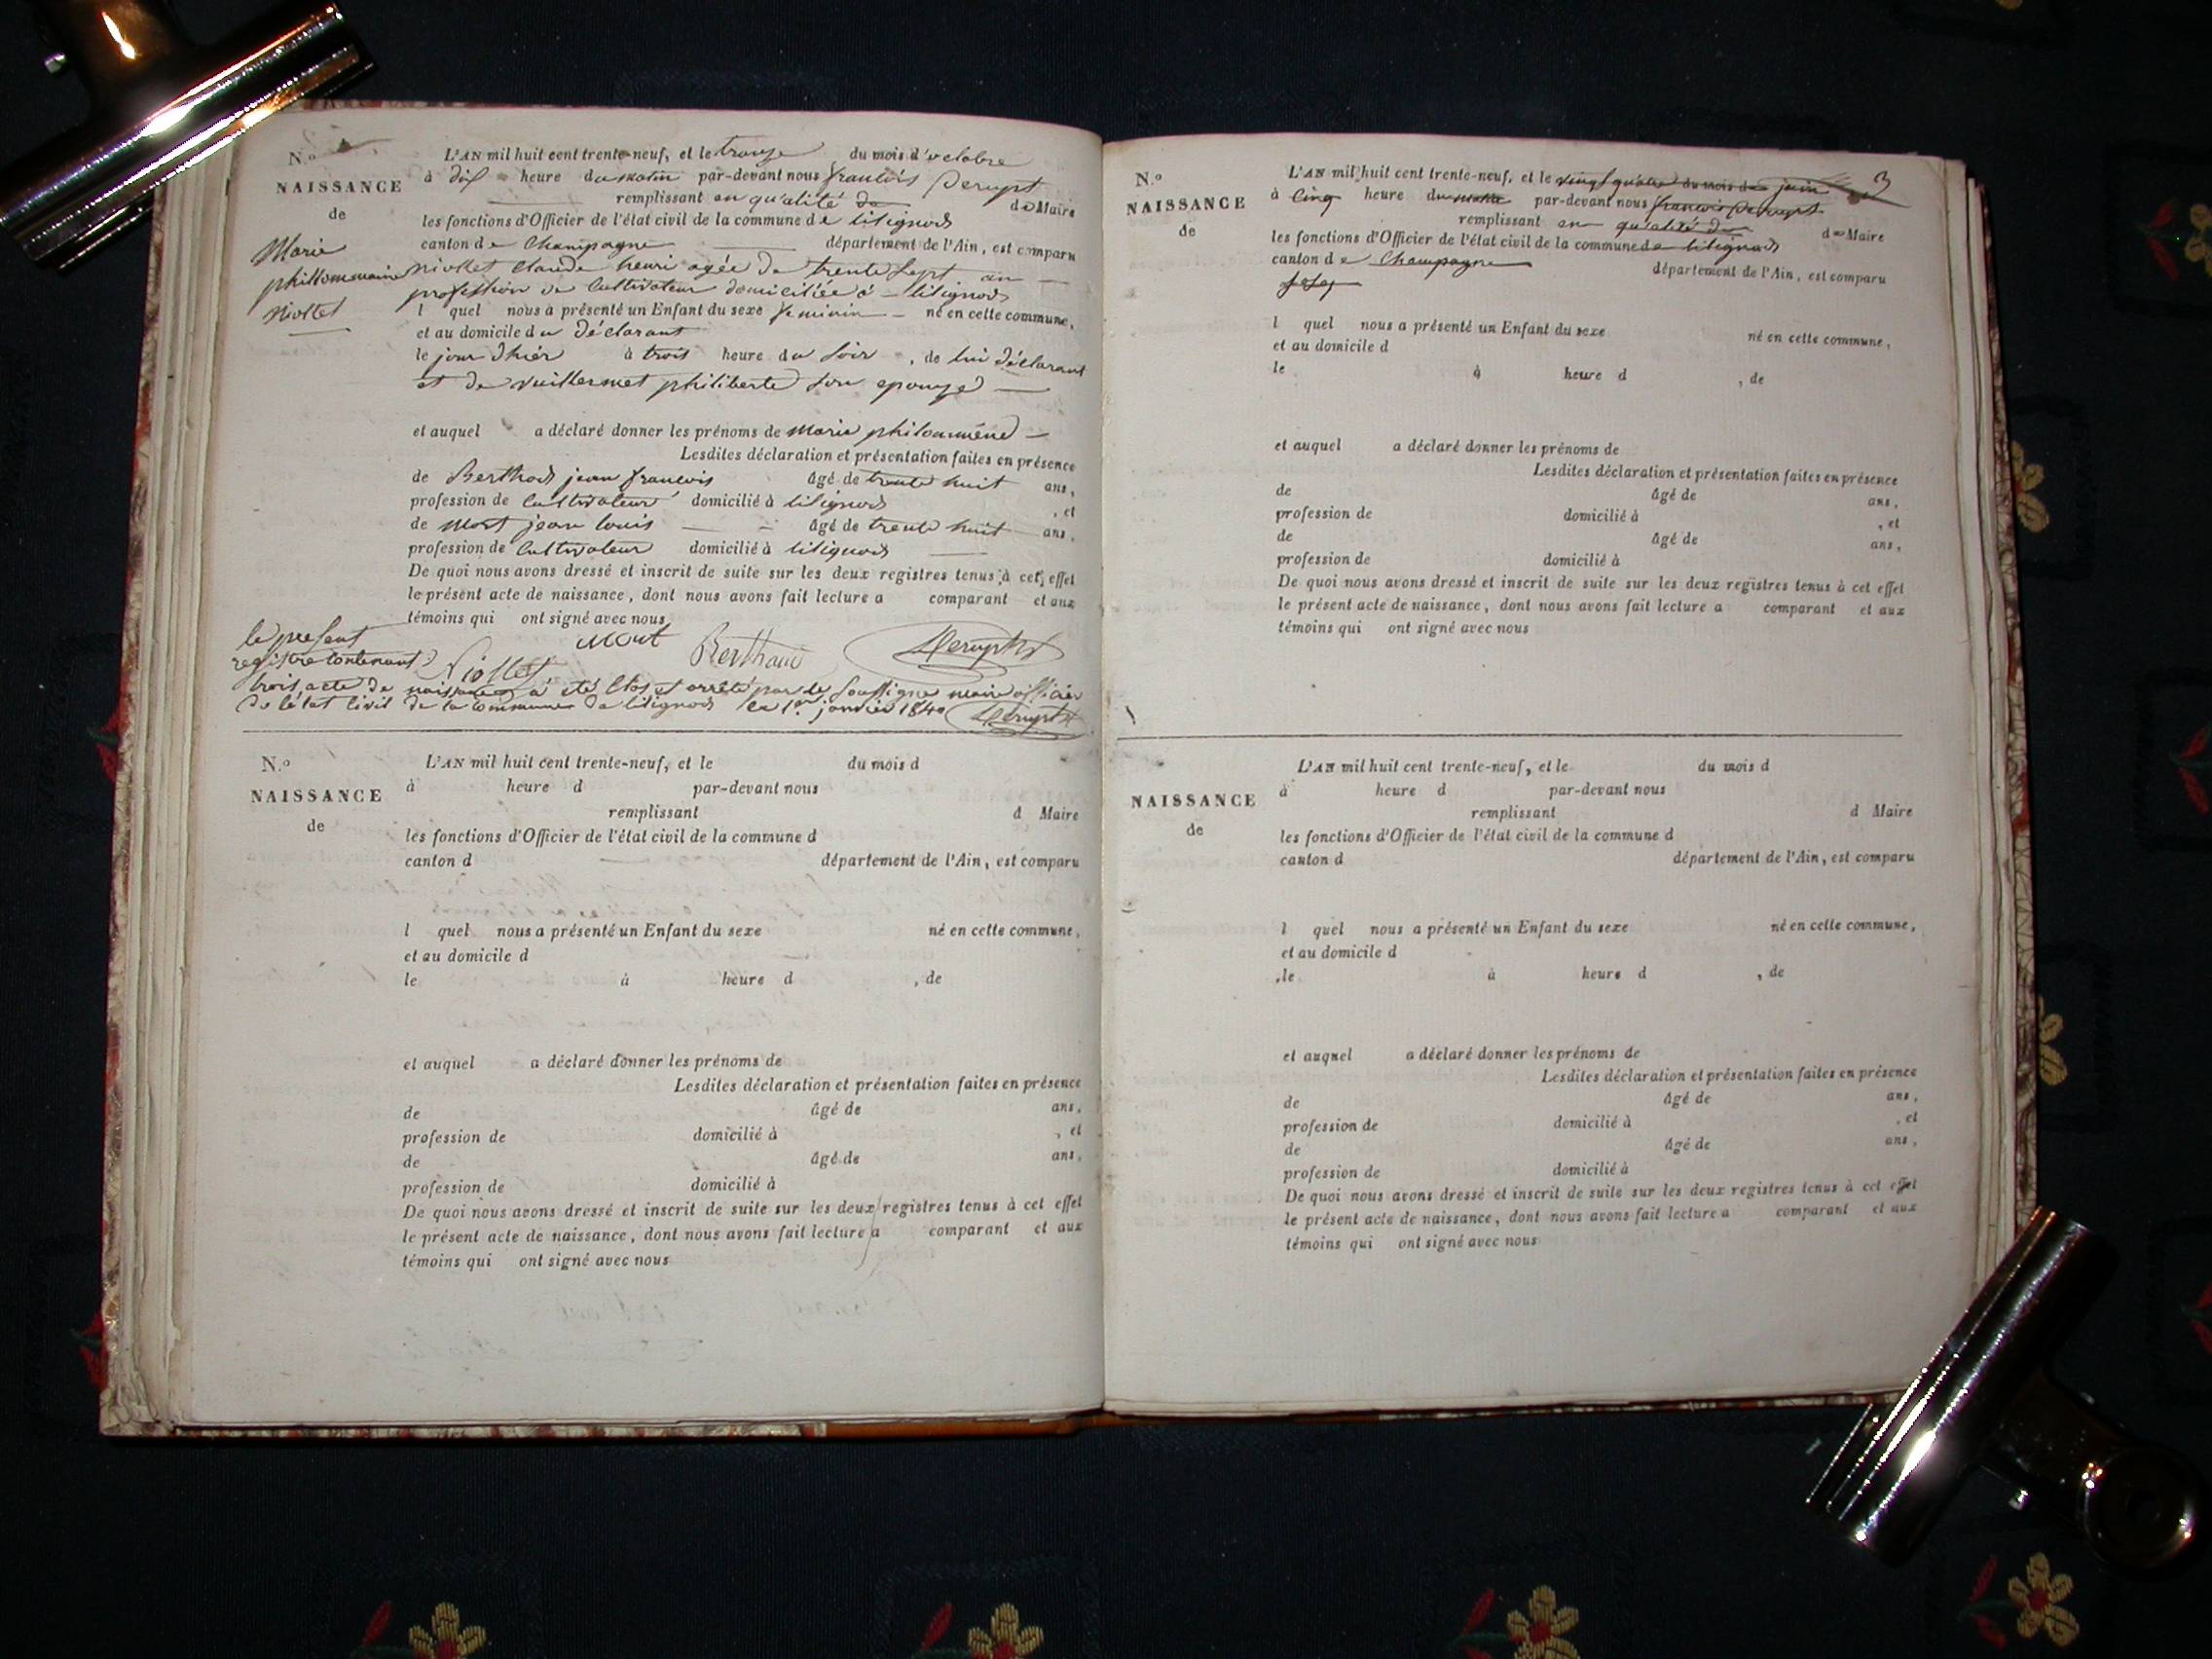 N.º
NAISSANCE
de
Marie
philloumaine
Niollet
L'AN mil huit cent trente-neuf, et le du mois d'octobre
à dix heure du matin par-devant nous francois Perupt
remplissant en qu'alité de de Maire
les fonctions d'Officier de l'état civil de la commune de litignod
canton de Champagne département de l'Ain, est comparu
Niollet Claude henri agée de trente sept an
profession de Cultivateur domiciliée à litignod
l quel nous a présenté un Enfant du sexe feminin né en cette commune,
et au domicile du déclarant
le jour d'hiér à trois heure du soir, de lui déclarant
et de Vuillermet philiberte son epouze
et auquel a déclaré donner les prénoms de Marie philoumène
Lesdites déclaration et présentation faites en présence
de Berthod jean francois âgé de trente huit ans,
profession de Cultivateur domicilié à litignod , et
de Mort jean louis âgé de trente huit ans,
profession de Cultivateur domicilié à litignod
De quoi nous avons dressé et inscrit de suite sur les deux registres tenus à cet effet
le présent acte de naissance, dont nous avons fait lecture a comparant et aux
témoins qui ont signé avec nous
Mort Berthod Perupt
Niollet
le présent
registre contenant
trois acte de naissance a été Clos et arrêté par le soussigné maire officier
de l'état Civil de la Commune de litignod le 1er janvier 1840 Perupt
N.º
NAISSANCE
de
L'AN mil huit cent trente-neuf, et le du mois d
à heure d par-devant nous
remplissant d Maire
les fonctions d'Officier de l'état civil de la commune d
canton d département de l'Ain, est comparu
l quel nous a présenté un Enfant du sexe né en cette commune,
et au domicile d
le à heure d , de
et auquel a déclaré donner les prénoms de
Lesdites déclaration et présentation faites en présence
de âgé de ans,
profession de domicilié à , et
de âgé de ans,
profession de domicilié à
De quoi nous avons dressé et inscrit de suite sur les deux registres tenus à cet effet
le présent acte de naissance, dont nous avons fait lecture a comparant et aux
témoins qui ont signé avec nous
3
N.º
NAISSANCE
de
L'AN mil huit cent trente-neuf, et le vingt quatre du mois de juin
à Cinq heure du matin par-devant nous francois Perupt
remplissant en qu'alité de de Maire
les fonctions d'Officier de l'état civil de la commune de litignod
canton de Champagne département de l'Ain, est comparu
l quel nous a présenté un Enfant du sexe né en cette commune,
et au domicile d
le à heure d , de
et auquel a déclaré donner les prénoms de
Lesdites déclaration et présentation faites en présence
de âgé de ans,
profession de domicilié à , et
de âgé de ans,
profession de domicilié à
De quoi nous avons dressé et inscrit de suite sur les deux registres tenus à cet effet
le présent acte de naissance, dont nous avons fait lecture a comparant et aux
témoins qui ont signé avec nous
NAISSANCE
de
L'AN mil huit cent trente-neuf, et le du mois d
à heure d par-devant nous
remplissant d Maire
les fonctions d'Officier de l'état civil de la commune d
canton d département de l'Ain, est comparu
l quel nous a présenté un Enfant du sexe né en cette commune,
et au domicile d
le à heure d , de
et auquel a déclaré donner les prénoms de
Lesdites déclaration et présentation faites en présence
de âgé de ans,
profession de domicilié à , et
de âgé de ans,
profession de domicilié à
De quoi nous avons dressé et inscrit de suite sur les deux registres tenus à cet effet
le présent acte de naissance, dont nous avons fait lecture a comparant et aux
témoins qui ont signé avec nous